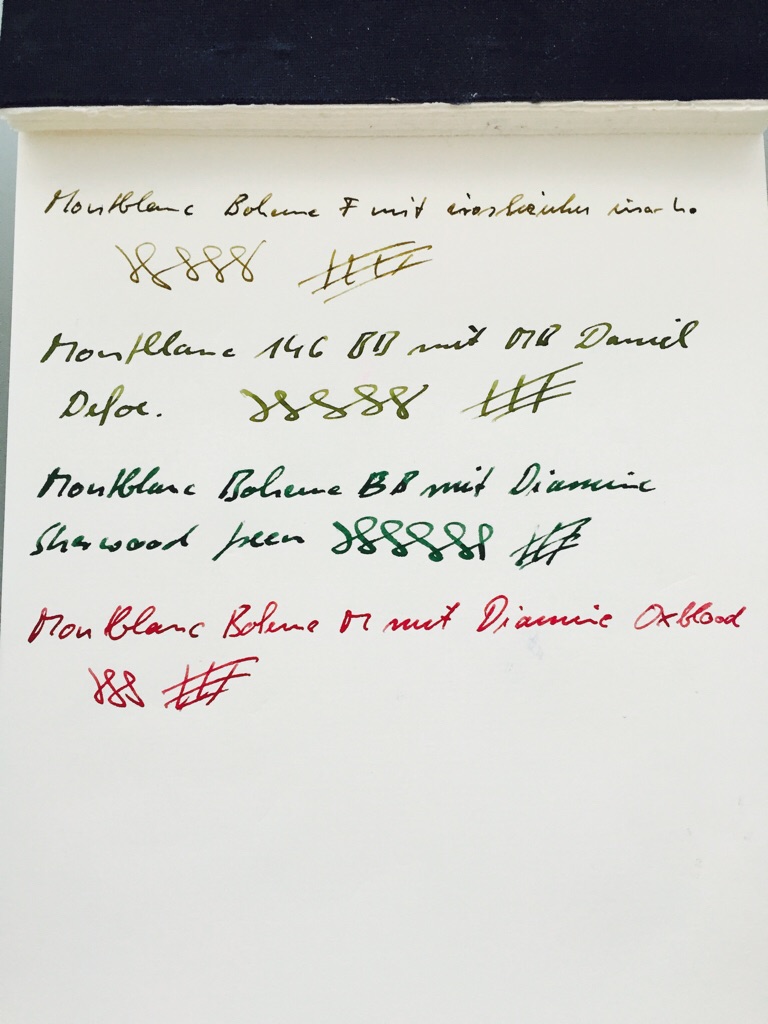 Montblanc Boheme F mit iroshizuku ina-ho
Montblanc 146 BB mit MB Daniel
Defoe.
Montblanc Boheme BB mit Diamine
Sherwood green
Montblanc Boheme M mit Diamine Oxblood